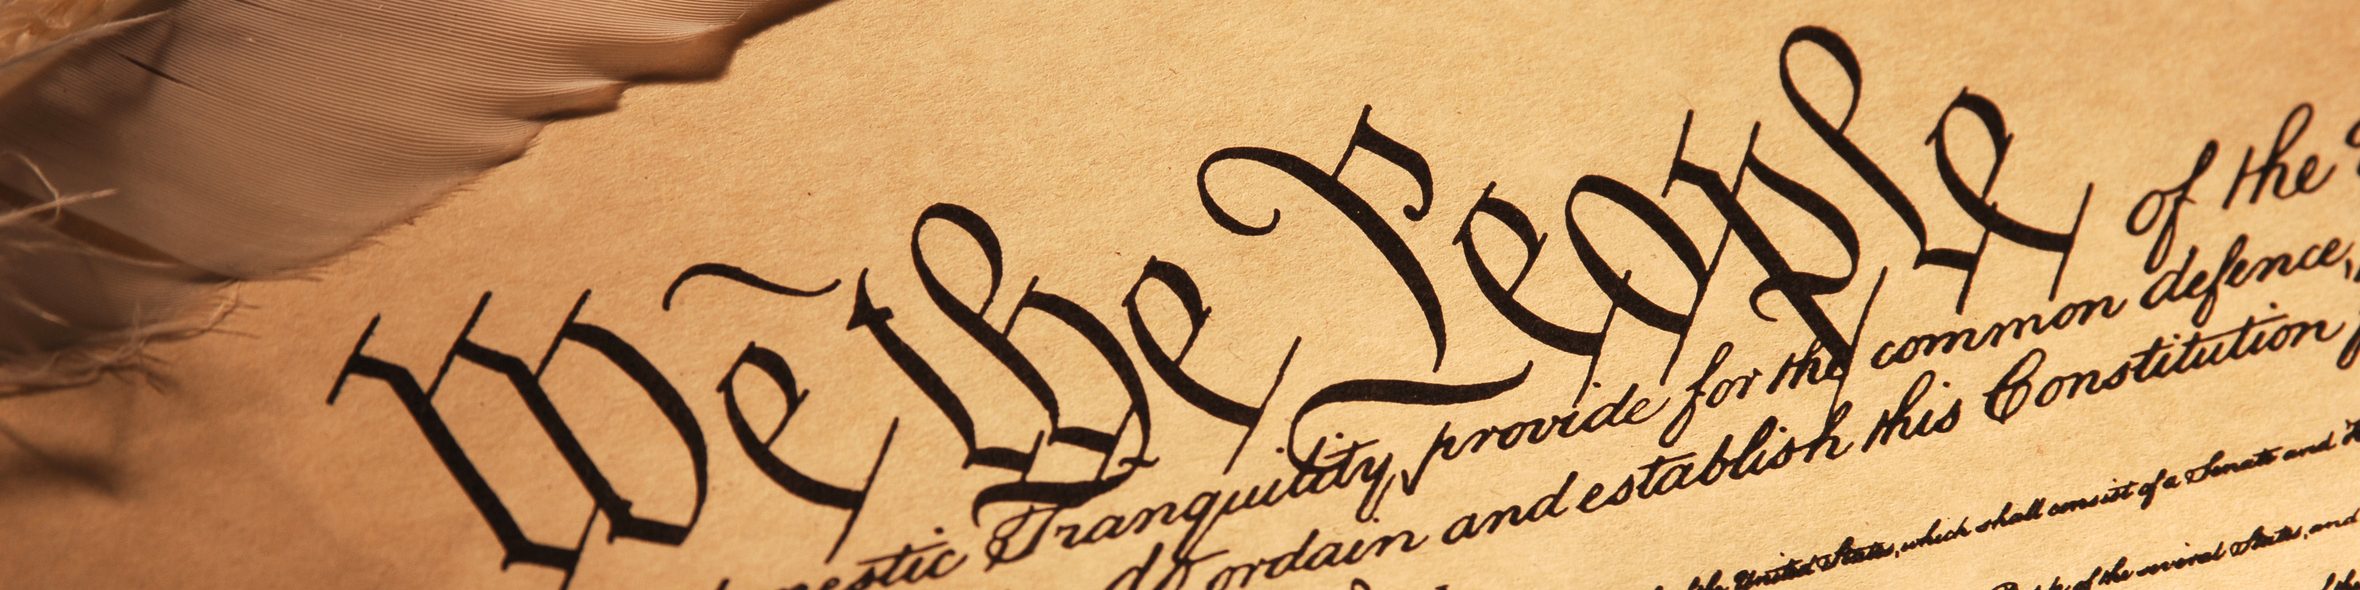 We the People of the
mestic Tranquility, provide for the common defence,
do ordain and establish this Constitution
the United States, which shall consist of a Senate and
of the several States, and
of the